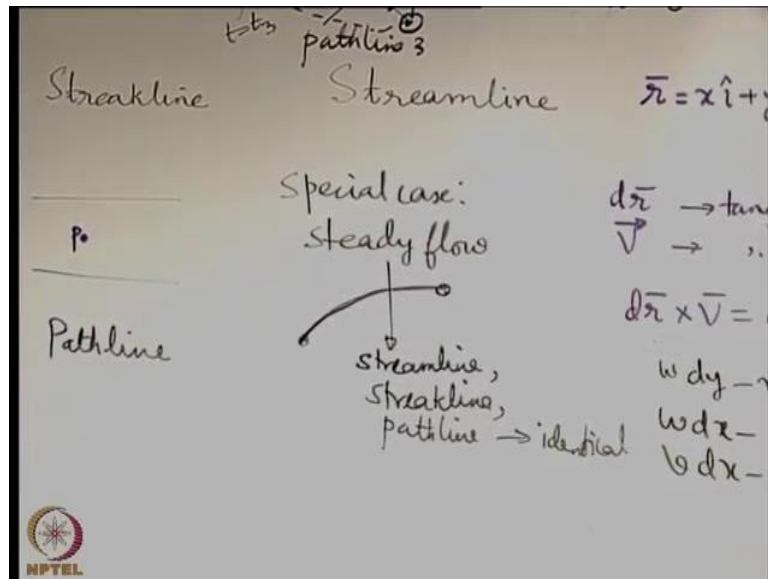 t=t3 pathline 3
Streakline
Streamline
r̄ = x î +
Special case:
steady flow
P.
dr̄ → tan
V⃗ → "
dr̄ × V̄ =
Pathline
streamline,
streakline,
pathline → identical
w dy –
w dx –
v dx –
NPTEL